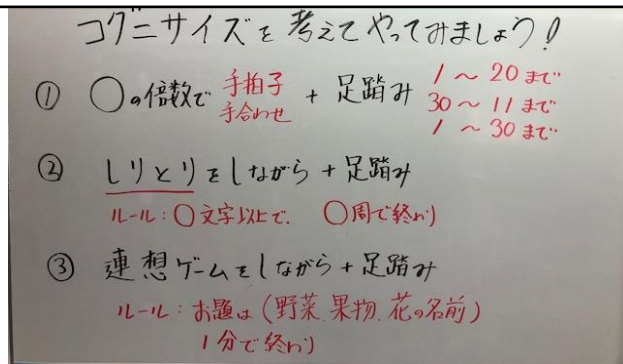 コグニサイズを考えてやってみましょう!
① ○の倍数で 手拍子 手合わせ + 足踏み 1〜20まで
30〜11まで
1〜30まで
② しりとりをしながら+足踏み
ルール:○文字以上で、○周で終わり
③ 連想ゲームをしながら+足踏み
ルール:お題は(野菜、果物、花の名前)
1分で終わり